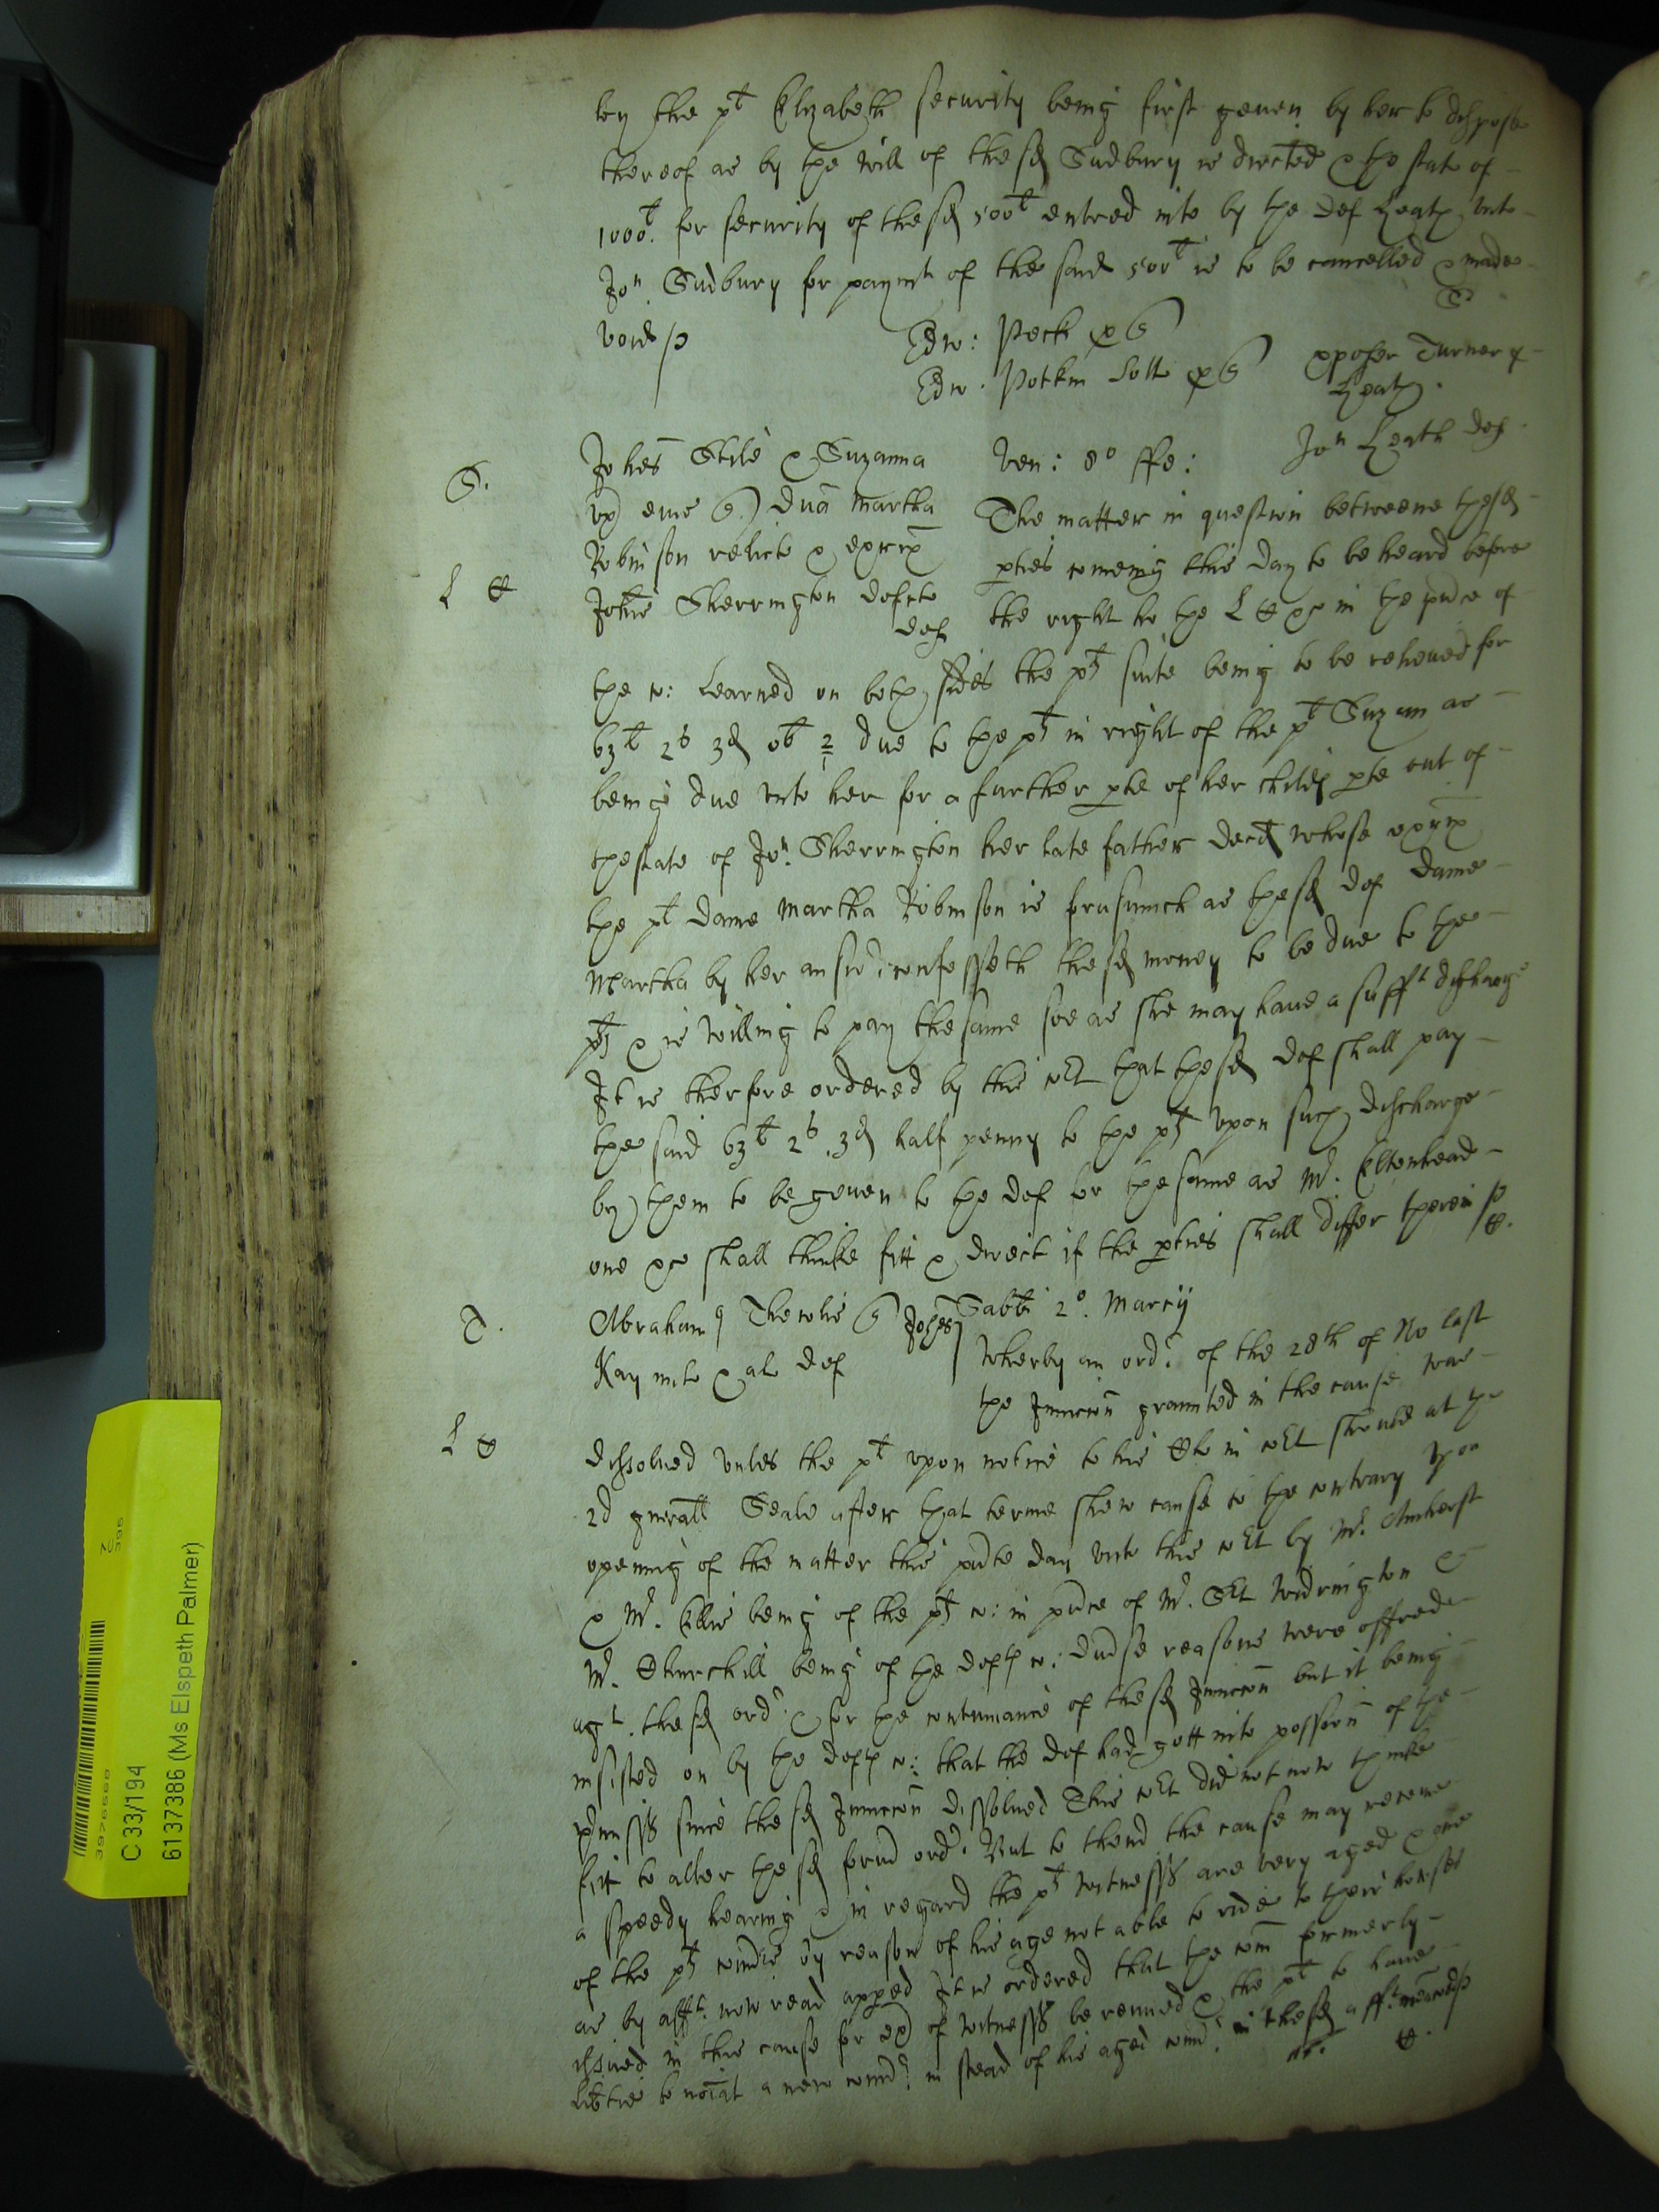 by the plt Elizabeth security being first geuen by her to dispose
thereof as by the will of the sd Sudbury is directed & the stat of
1000l. for security of the sd 500l entred into by the Def Heath vnto
Jon Sudbury for paymt of the said 500l is to be cancelled & made
void
Edw: Peck
Edw. Potkin Turner &
Heath.
Jon Heath def
S.
Johes Stile & Suzanna
vx eius Dnā Martha
Robinson relicta & exrix
Johis Sherrington defcto
def
Ven: 8o ffe:
The matter in question betweene the sd
pties comeing this day to be heard before
the right ho the L & in the pnce of
the co: Learned on both sides the plts suite being to be releiued for
63l 2s 3d ob due to the plts in right of the plt Suzan as
being due vnto her for a further pte of her childs pte out of
thestate of Jon. Sherrington her late father decd whose exrix
the plt Dame Martha Robinson is forasmuch as the sd def Dame
Martha by her answr confesseth the sd money to be due to the
plts & is willing to pay the same soe as she may haue a sufft discharge
It is therfore ordered by this Cot that the sd def shall pay
the said 63l 2s. 3d half penny to the plts vpon such discharge
by them to be geuen to the def for the same as Mr. Eltonhead
one &c shall thinke fitt & direct if the pties shall differ therein
T.
Abrahamus Thewlis Johes
Kay & al def
Sabbti 2o. Marcij
Wherby an ordr of the 28th of No last
the Inuncon graunted in the cause was
dissolued vnles the plt vpon notice to his in Cot should at the
2d gnerall Seale after that terme shew cause to the contrary vpon
opening of the matter this pnte day vnto this Cot by Mr. Amherst
& Mr. Ellis being of the plts co: in pnce of Mr. Widrington &
Mr. Churchill being of the defts co: diuerse reasons were offred
agt. the sd ordr & for the contynuance of the sd Inuncon but it being
insisted on by the defts co: that the def had gott into possion of the
pmisss since the sd Inuncon dissolued This Cot did not now thinke
fitt to alter the sd former ordr. But to thend the cause may receiue
a speedy hearing & in regard the plts witnesses are very aged & one
of the plts comrs by reason of his age not able to ride to their houses
as by afft. now read appeed It is ordered that the com formerly
issued in this cause for ex of witnesses be renued & the plt to haue
libtie to noiat a new comr. in stead of his aged comr. in the sd afft. menconed
C 33/194
6137386 (Ms Elspeth Palmer)